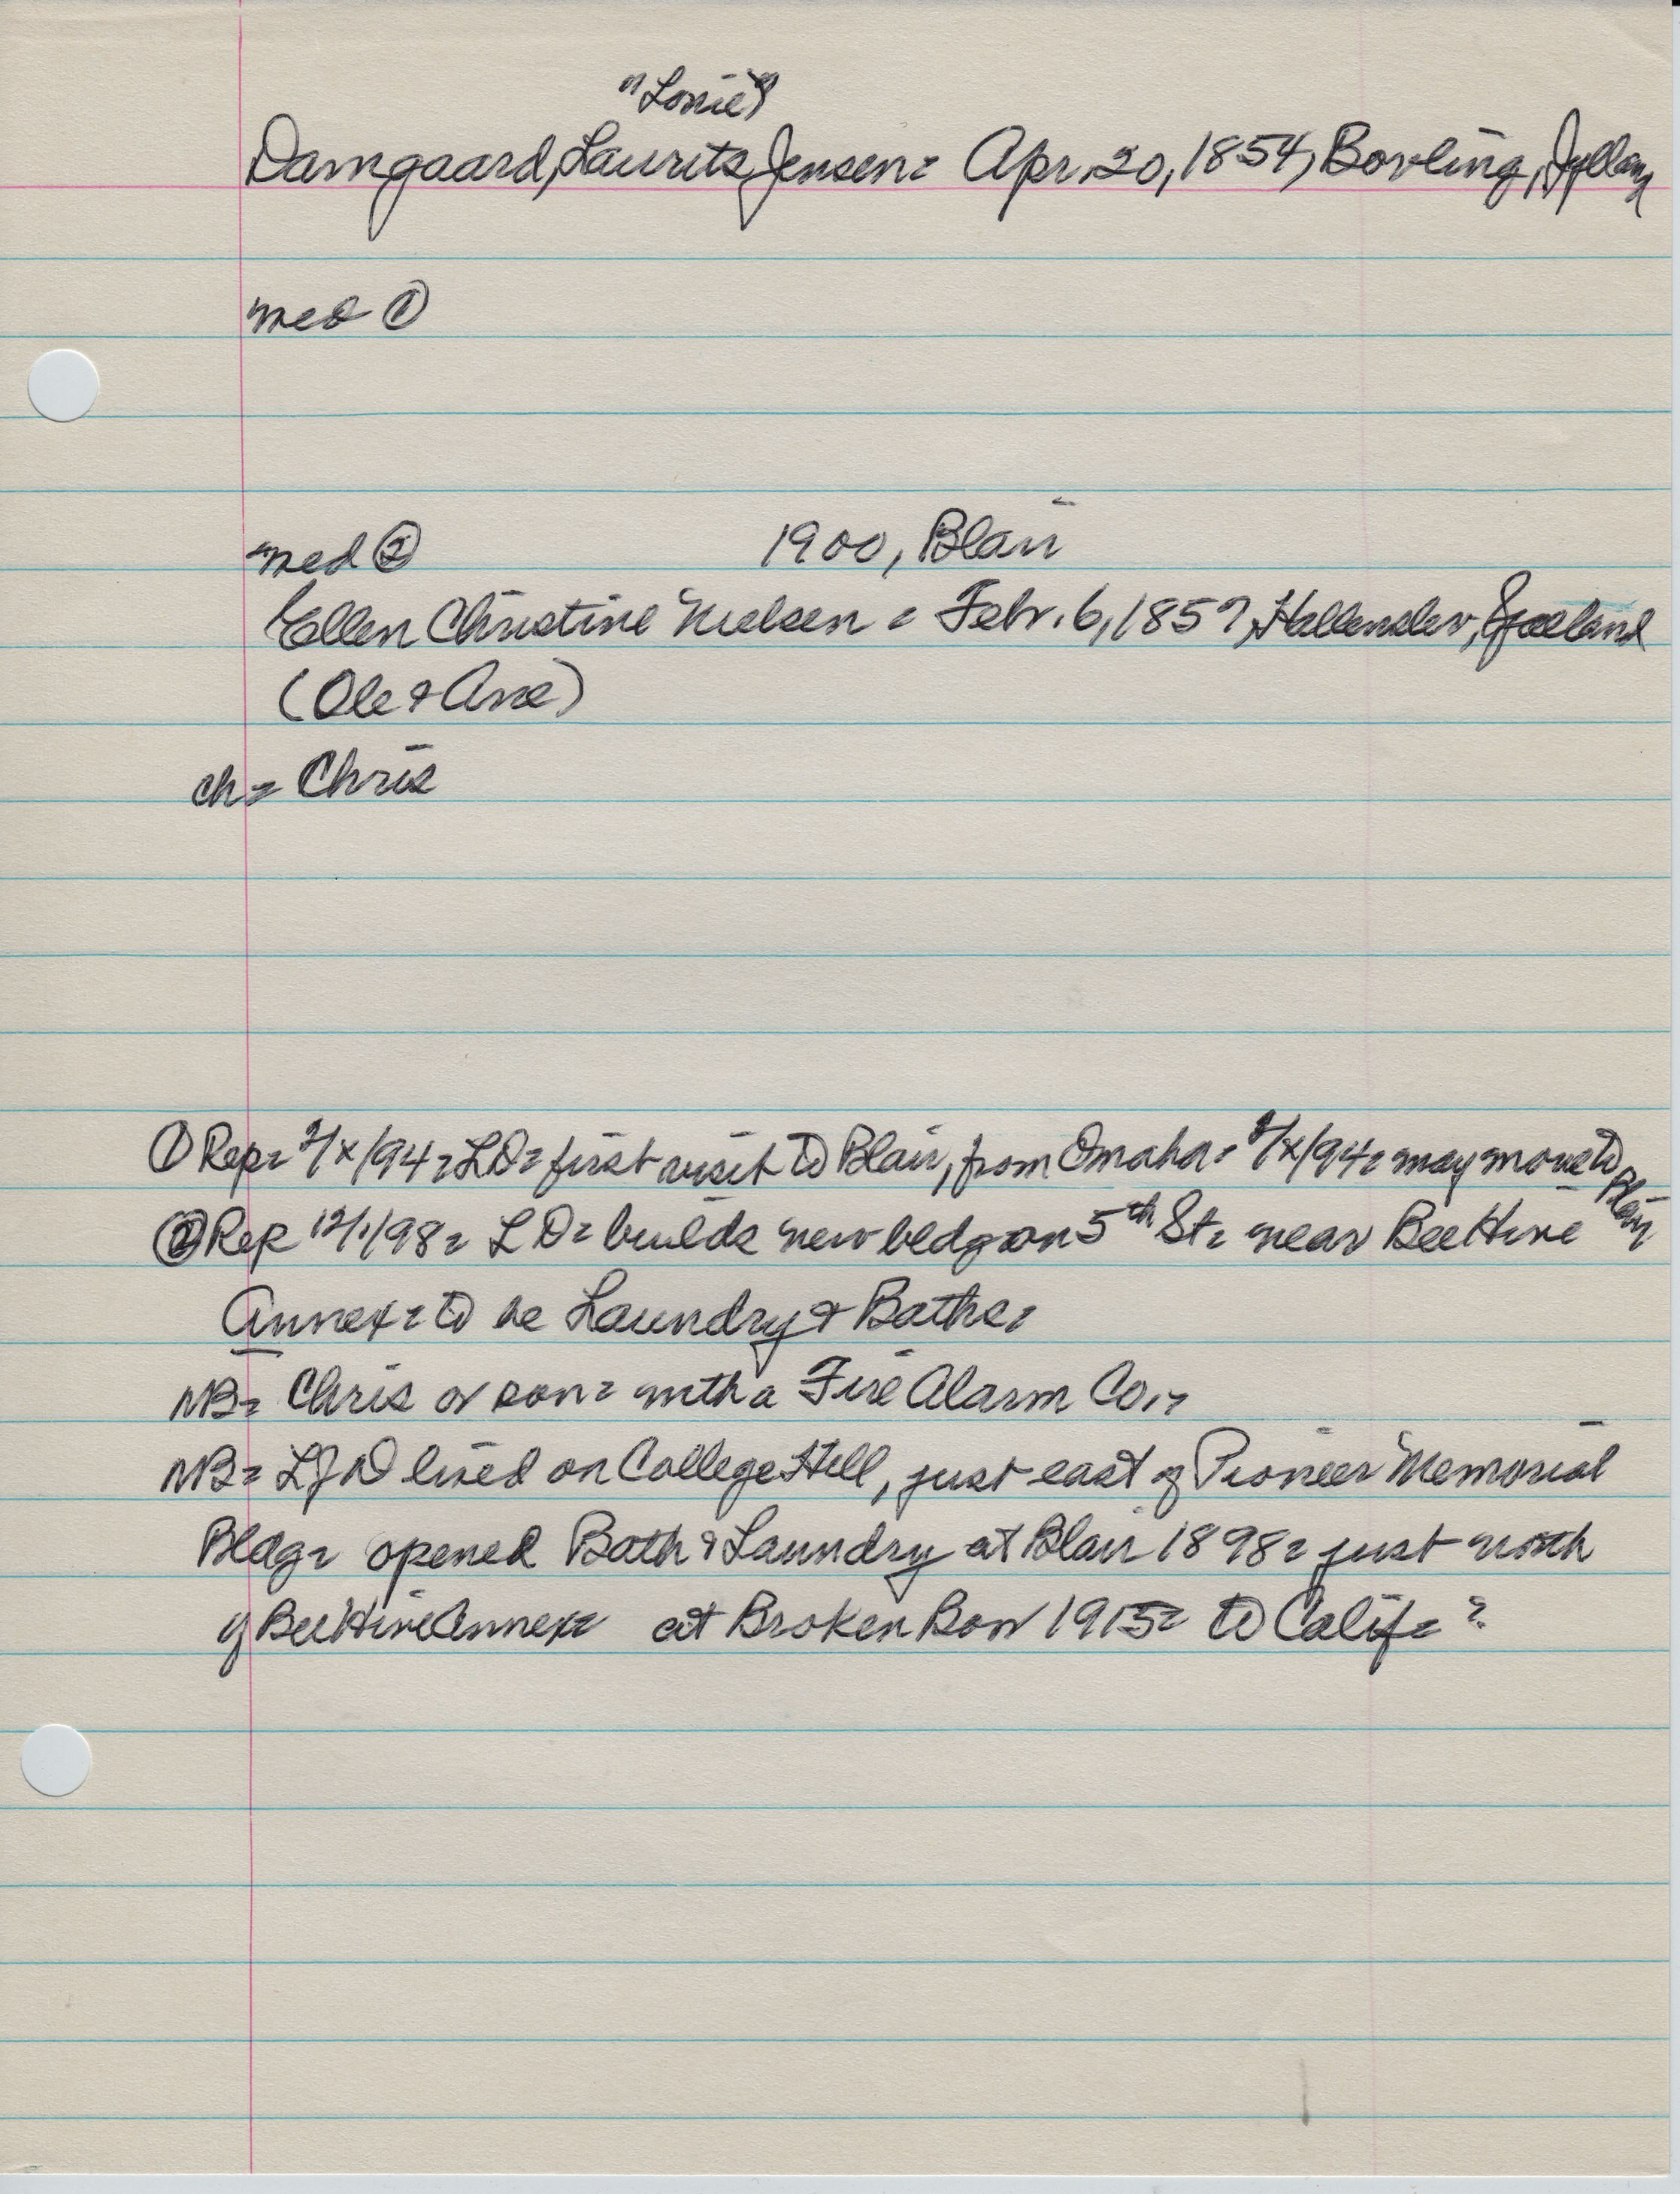 "Lonie"
Damgaard, Laurits Jensen = Apr. 20, 1854, Bovling, Jylland
med ①
med ② 1900, Blair
Ellen Christine Nielsen = Febr. 6, 185?, Sjaelland
(Ole & Ane)
ch = Chris
① Rep = /X/94 = LD = first visit to Blair, from Omaha = /X/94 = may move to Blair
② Rep 12/1/98 = LD = builds new bldg on 5th St = near BeeHive
Annex = to be Laundry & Baths =
NB = Chris or son = with a Fire Alarm Co. =
NB = LJD lived on College Hill, just east of Pioneer Memorial
Bldg = opened Bath & Laundry at Blair 1898 = just north
of BeeHive Annex = at Broken Bow 1915 = to Calif = ?